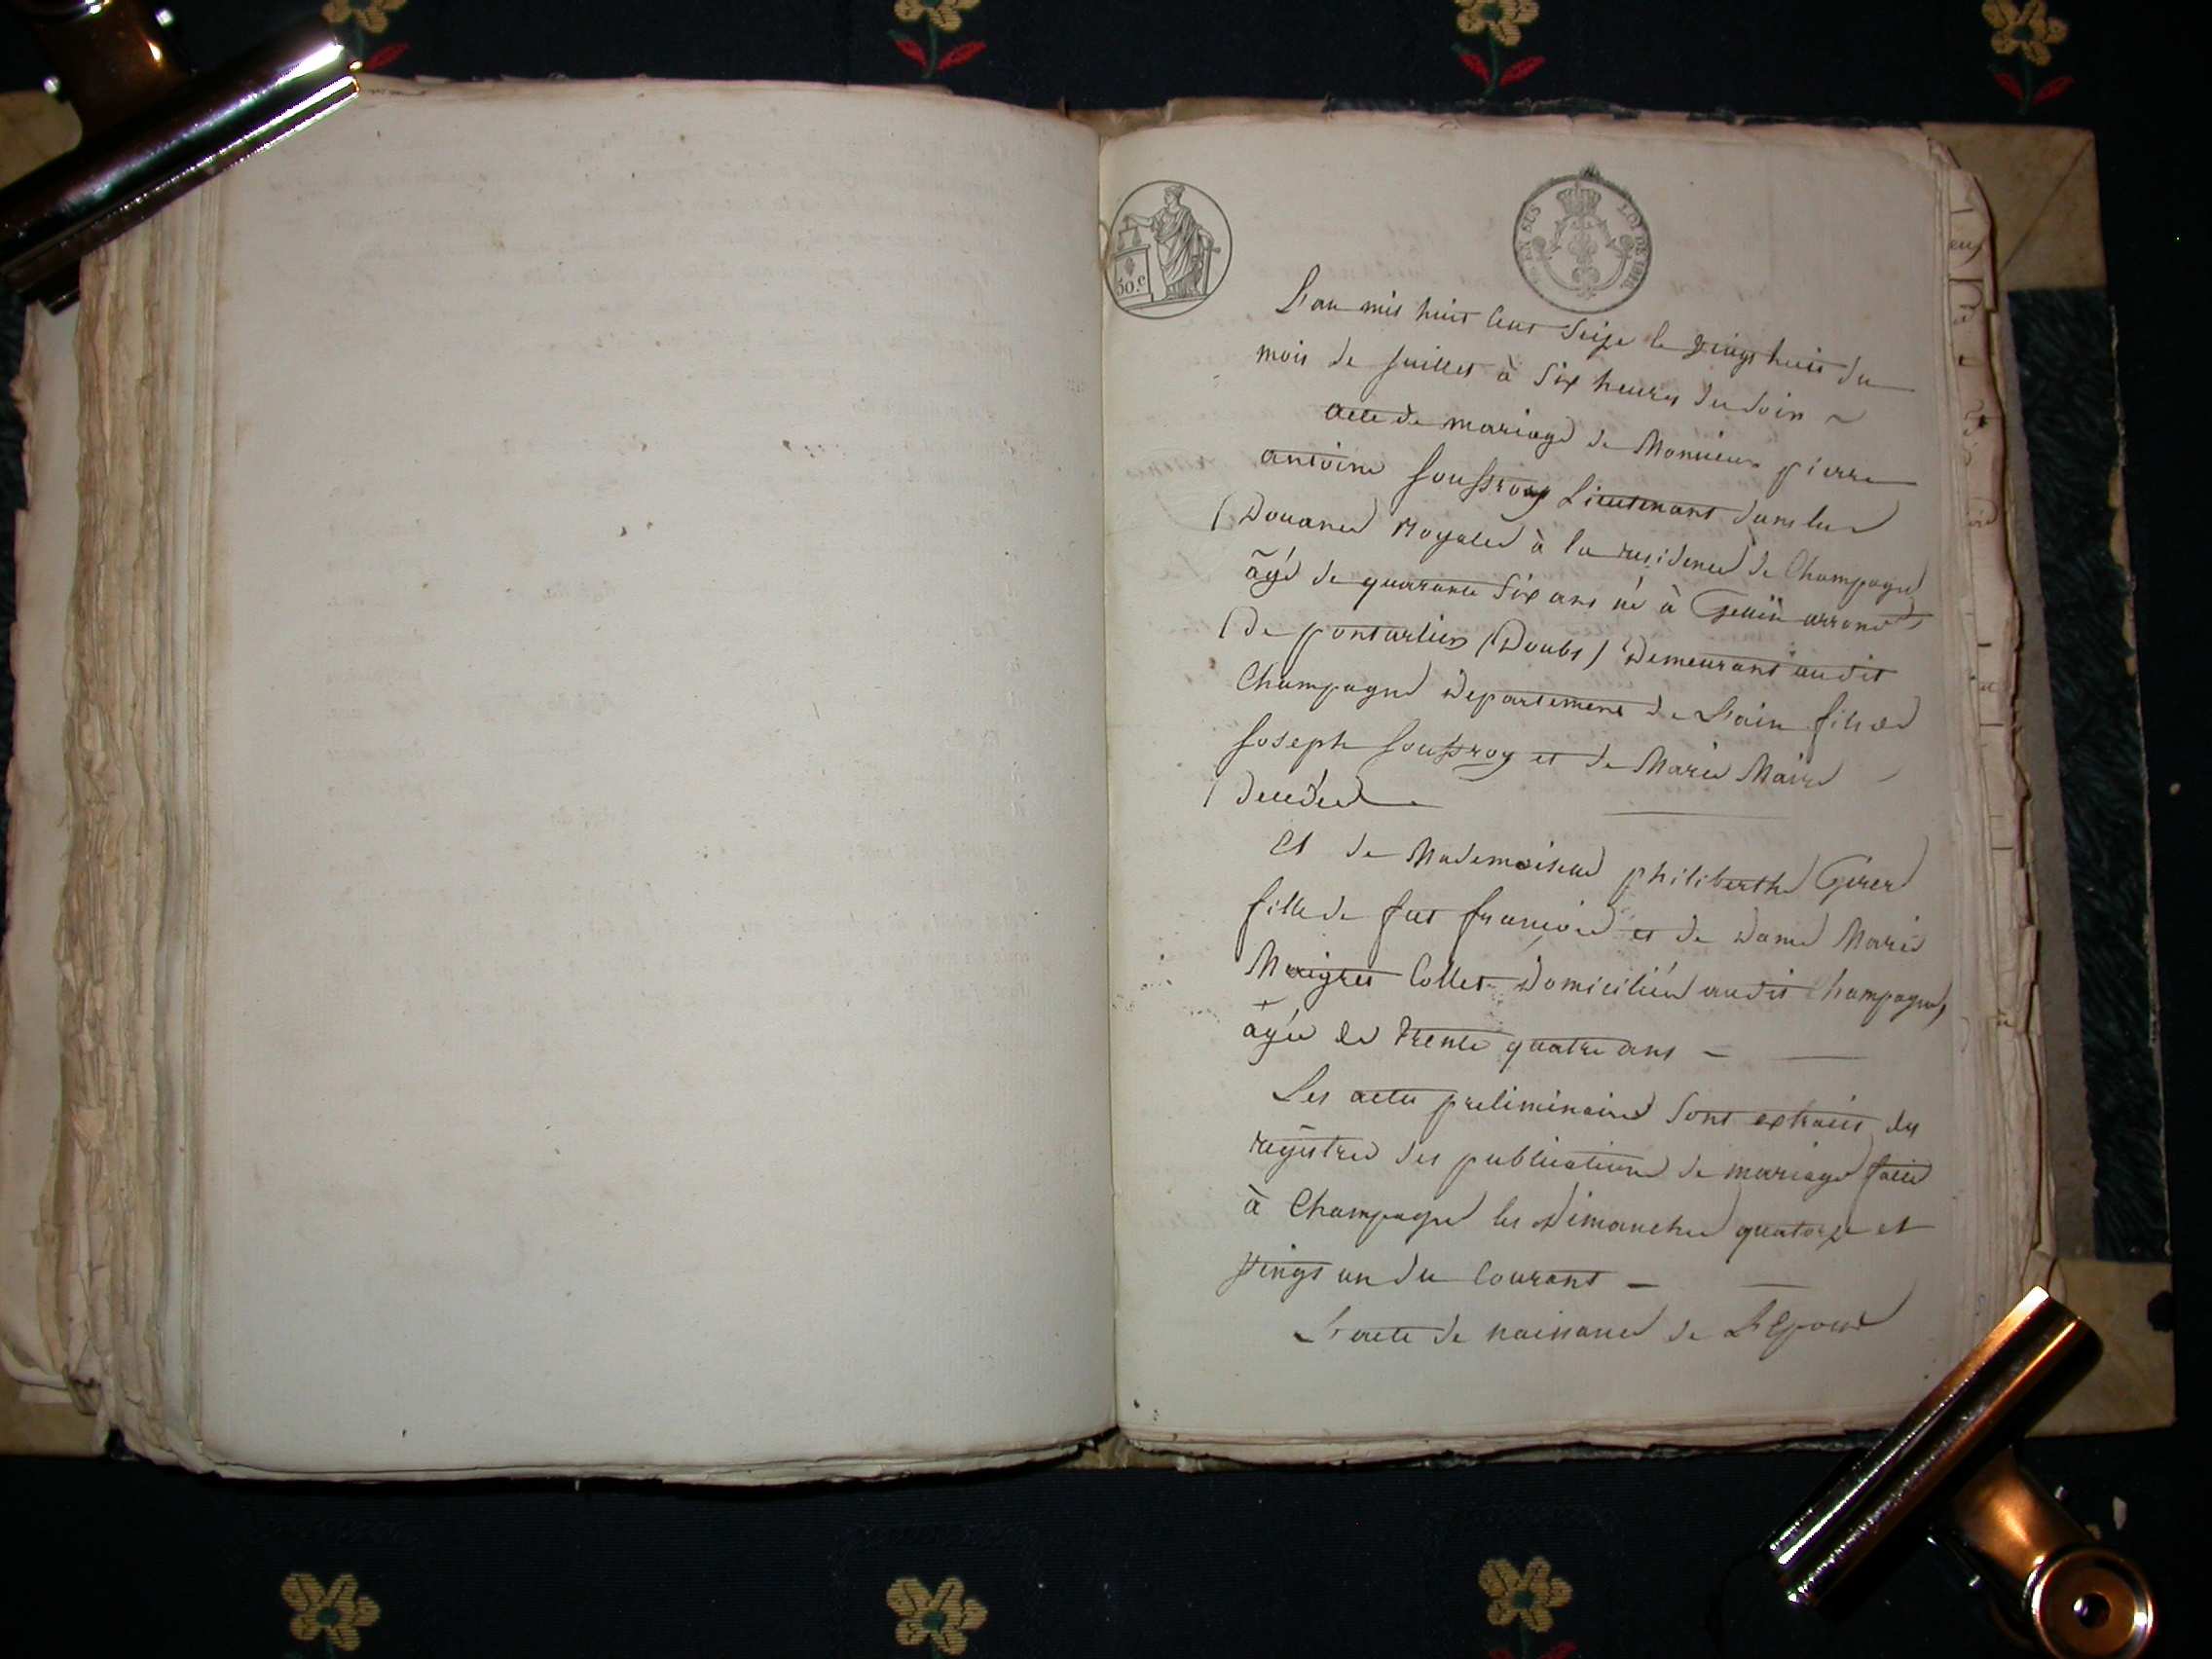 50.c
EN SUS LOI DE 1816
L'an mil huit cent Seize le vingt huit du
mois de juillet à Six heures du soir ~
acte de mariage de Monsieur pierre
antoine jouffroy Lieutenant dans les
Douanes Royales à la residence de Champagne
âgé de quarante Six ans né à Gellin arrond.t
De pontarlier (Doubs) Demeurant audit
Champagne Departement de L'ain fils de
joseph jouffroy et de Marie Maire
Decédés
Et de Mademoiselle philiberthe
fille de fut françois et de Dame Marie
Maigret Collet Domiciliés audit Champagne,
âgée de trente quatre ans —
Les actes preliminaires Sont extraits des
registres des publications de mariage faites
à Champagne les Dimanches quatorze et
vingt un du Courant —
L'acte de naissance de L'Epoux